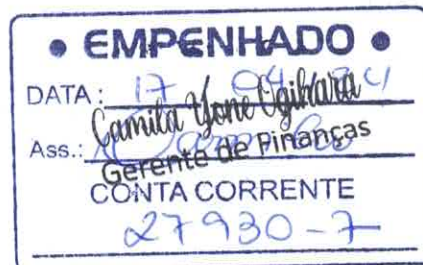 • EMPENHADO •
DATA: 17 04 24
Camila Yone Ogihara
Ass.:
Gerente de Finanças
CONTA CORRENTE
27930-7